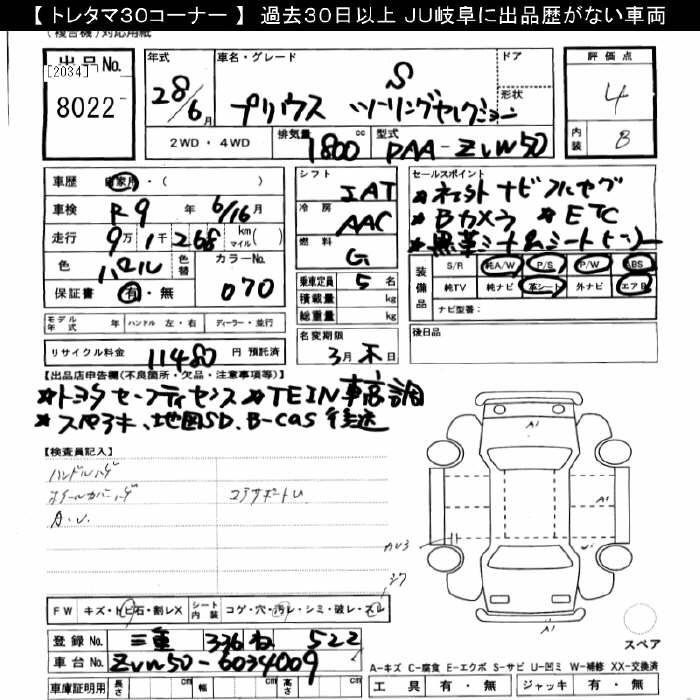 【トレタマ30コーナー】 過去30日以上 JU岐阜に出品歴がない車両
(複合機)対応用紙
出品No. 8022
[2034]
年式 28/6月
車名・グレード S
プリウス ツーリングセレクション
ドア
形状
評価点 4
内装 B
2WD・4WD
排気量 1800 cc
型式 DAA-ZVW50
車歴 自家用・( )
車検 R9年 6/16月
走行 9万1千268 km(マイル)
色 パール
色替
カラーNo. 070
保証書 有・無
シフト IAT
冷房 AAC
燃料 G
乗車定員 5名
積載量 kg
総重量 kg
名変期限 3月末日
セールスポイント
★ネット ナビ フルセグ
★Bカメラ ★ETC
★黒革シート&シートヒーター
装備品
S/R 純A/W P/S P/W ABS
純TV 純ナビ 革シート 外ナビ エアB
ナビ型番:
後日品
モデル年式 年 ハンドル 左・右 ディーラー・並行
リサイクル料金 11480 円 預託済
【出品店申告欄(不良箇所・欠品・注意事項等)】
★トヨタセーフティセンス ★TEIN車高調
★スペアキー、地図SD、B-CAS 後送
【検査員記入】
ハンドルハゲ
A.U.
A1
A1
U1
カリ3
FW キズ・トビ石・割レX
シート内装 コゲ・穴・汚レ・シミ・破レ・スレ
登録No. 三重 336 ね 522
車台No. ZVW50-6034009
車庫証明用 長さ cm 幅 cm 高さ cm
スペア
A-キズ C-腐食 E-エクボ S-サビ U-凹ミ W-補修 XX-交換済
工具 有・無 ジャッキ 有・無